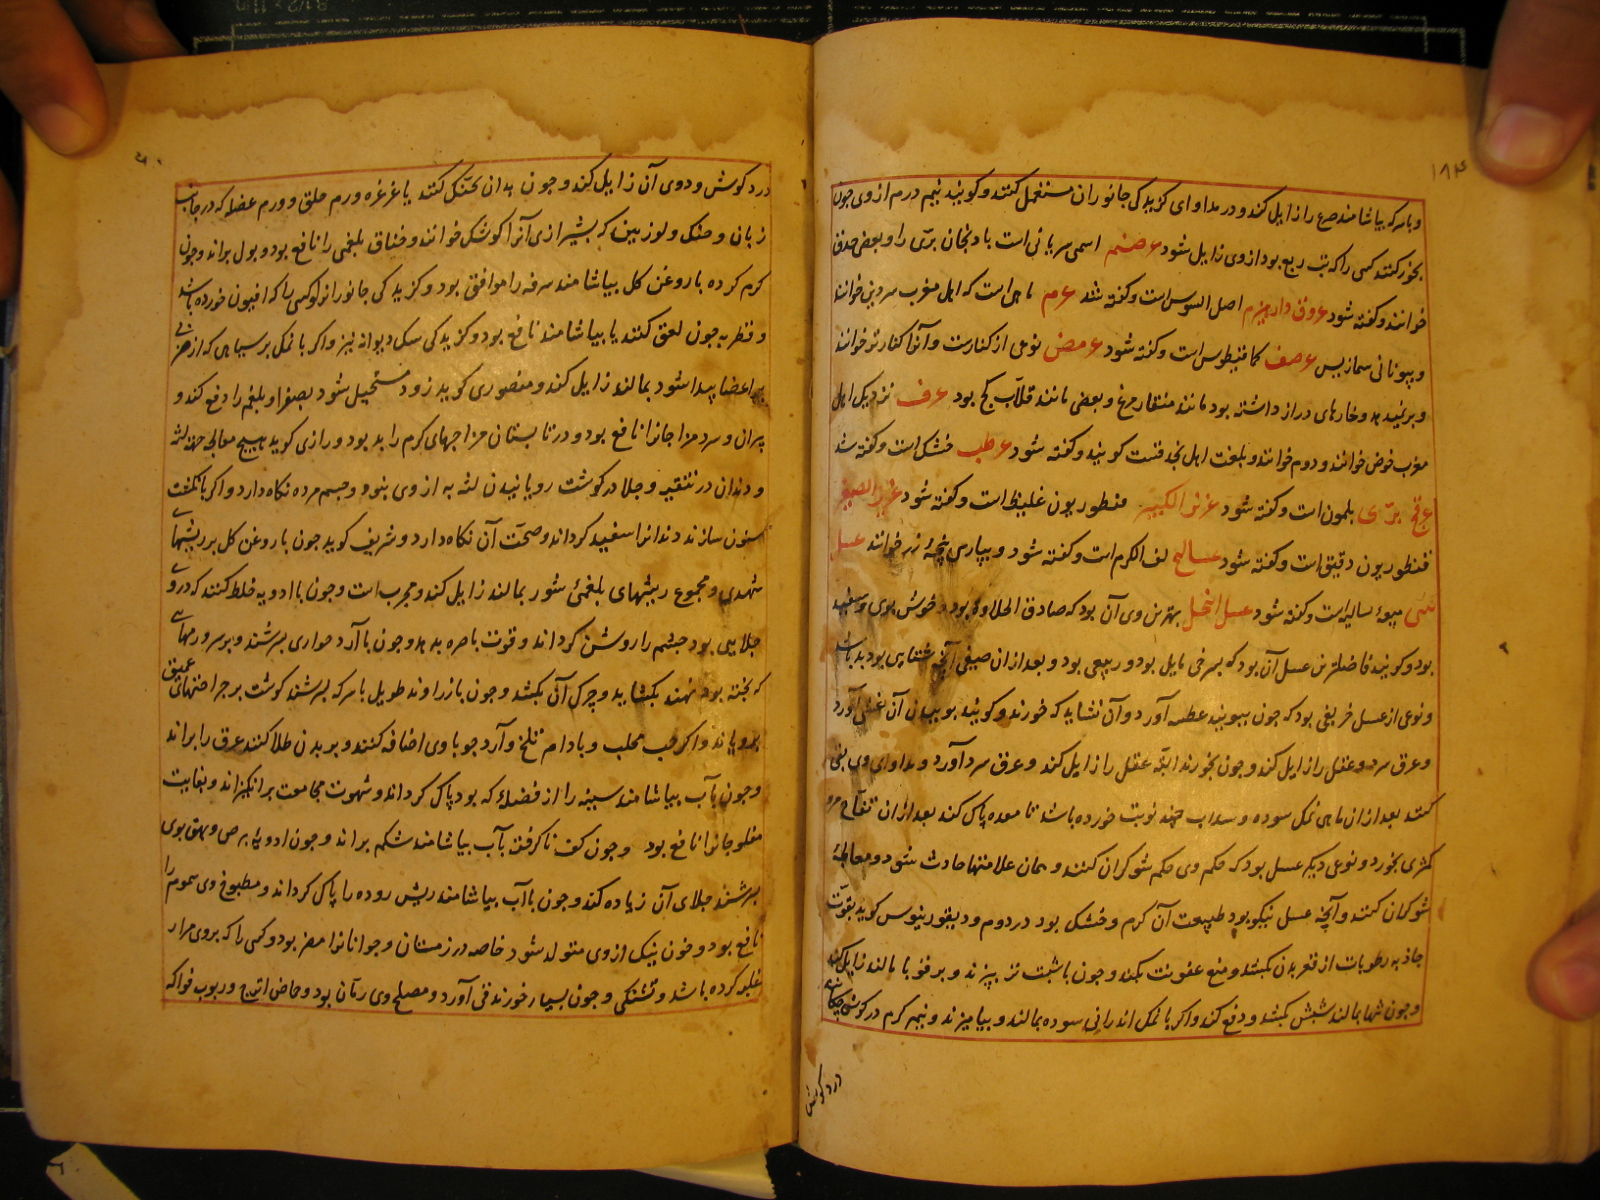 ۱۸۳
و با سرکه بیاشامند صرع را زایل کند و در مداوای کزیدکی جانوران مستعمل کنند و کویند نیم درم از وی جون
بخور کنند کسی را که تب ربع بود از وی زایل شود عرصنم اسمی سریانی است بادنجان بری را و بعضی حدق
خوانند و کفته شود عروق دارهرم اصل السوس است و کفته شد عرم ماهی است که اهل مغرب سردین خوانند
و بیونانی سماریس عرصف کمافیطوس است و کفته شود عرمض نوعی از کنارست و آنرا کنار تر خوانند
و بر نبید هد و خارهای دراز داشته بود مانند منقار مرغ و بعضی مانند قلاب کج بود عرف نزدیک اهل
مغرب خوض خوانند و دوم خوانند و بلغت اهل نجد فتست کویند و کفته شود عرطب خشک است و کفته شد
بری بلمون است و کفته شود عزیز الکبیر قنطوریون غلیظ است و کفته شود عزیز الصغیر
قنطوریون دقیق است و کفته شود عسالج لف الکرم است و کفته شود و بپارسی پنجۀ زر خوانند عسل
لبنی میعۀ سایله است و کفته شود عسل النحل بهترین وی آن بود که صادق الحلاوه بود و خوش بوی و سفید
بود و کویند فاضلترین عسل آن بود که بسرخی مایل بود و ربیعی بود و بعد از ان صیفی آنچه شتایی بود بد باشد
و نوعی از عسل خریفی بود که جون ببویند عطسه آورد و آن نشاید که خورند و کویند بوییدن آن غشی آورد
و عرق سرد و عقل را زایل کند و جون بخورند البته عقل را زایل کند و عرق سرد آورد و مداوای وی بقی
کنند بعد از ان ماهی نمک سوده و سداب چند نوبت خورده باشد تا معده پاک کند بعد از ان تفاح مز و
کمثری بخورد و نوعی دیکر عسل بود که حکم وی حکم شوکران کنند و همان علامتها حادث شود و معالجۀ
شوکران کنند و آنچه عسل نیکو بود طبیعت آن کرم و خشک بود در دوم و دیسقوریدوس کوید بقوت
جاذبه رطوبات از قعر بدن بکشد و منع عفونت بکند و جون با شبت تر بپزند و بر قوبا مالند زایل کند
و جون تنها بمالند شپش بکشد و دفع کند و اکر با نمک اندرانی سوده بمالند و بیامیزند و نیم کرم در کوش چکانند
درد کوش
درد کوش و دوی آن زایل کند و جون بدان تحنک کنند یا غرغره ورم حلق و ورم عضله که در جانب
زبان و حنک و لوزتین که بشیرازی آنرا کوشک خوانند و خناق بلغمی را نافع بود و بول براند و جون
کرم کرده با روغن کل بیاشامند سرفه را موافق بود و کزیدکی جانوران و کسی را که افیون خورده باشد
و فطر به جون لعق کنند یا بیاشامند نافع بود و کزیدکی سک دیوانه نیز و اکر با نمک بر سیاهی که از ضربی
بر اعضا پیدا شود بمالند زایل کند و منصوری کوید زود مستحیل شود بصفرا و بلغم را دفع کند و
پیران و سرد مزاجانرا نافع بود و در تابستان مزاجهای کرم را بد بود و رازی کوید هیچ معالجه جهت لثه
و دندان در تنقیه و جلا در کوشت رویانیدن لثه به از وی بنود و جسم مرده نکاه دارد و اکر با انکشت
سنون سازند دندانرا سفید کرداند و صحت آن نکاه دارد و شریف کوید جون با روغن کل بر ریشهای
شهدی و مجموع ریشهای بلغمی شور بمالند زایل کند و مجرب است و جون با ادویه خلط کنند که در وی
جلایی بود چشم را روشن کرداند و قوت باصره بدهد و جون با آرد حواری بسرشند و بر سر ورمهایی
که پخته بود نهند بکشاید و چرک آن بکشد و جون با زراوند طویل با سرکه بسرشند کوشت بر جراحتهای عمیق
برویاند و اکر حب محلب و بادام تلخ و آرد جو با وی اضافه کنند و بر بدن طلا کنند عرق را براند
و جون بآب بیاشامند سینه را از فضله که بود پاک کرداند و شهوت مجامعت برانکیزاند و بغایت
مفلوجانرا نافع بود و جون کف ناکرفته بآب بیاشامند شکم براند و جون ادویه برص و بهق بوی
بسرشند جلای آن زیاده کند و جون با آب بیاشامند ریش روده را پاک کرداند و مطبوخ وی سموم را
نافع بود و خون نیک از وی متولد شود خاصه در زمستان و جوانانرا مضر بود و کسی را که بر وی مرار
غلبه کرده باشد و تشنکی و جون بسیار خورند قی آورد و مصلح وی رمان بود و حماض اترج و ربوب فواکه